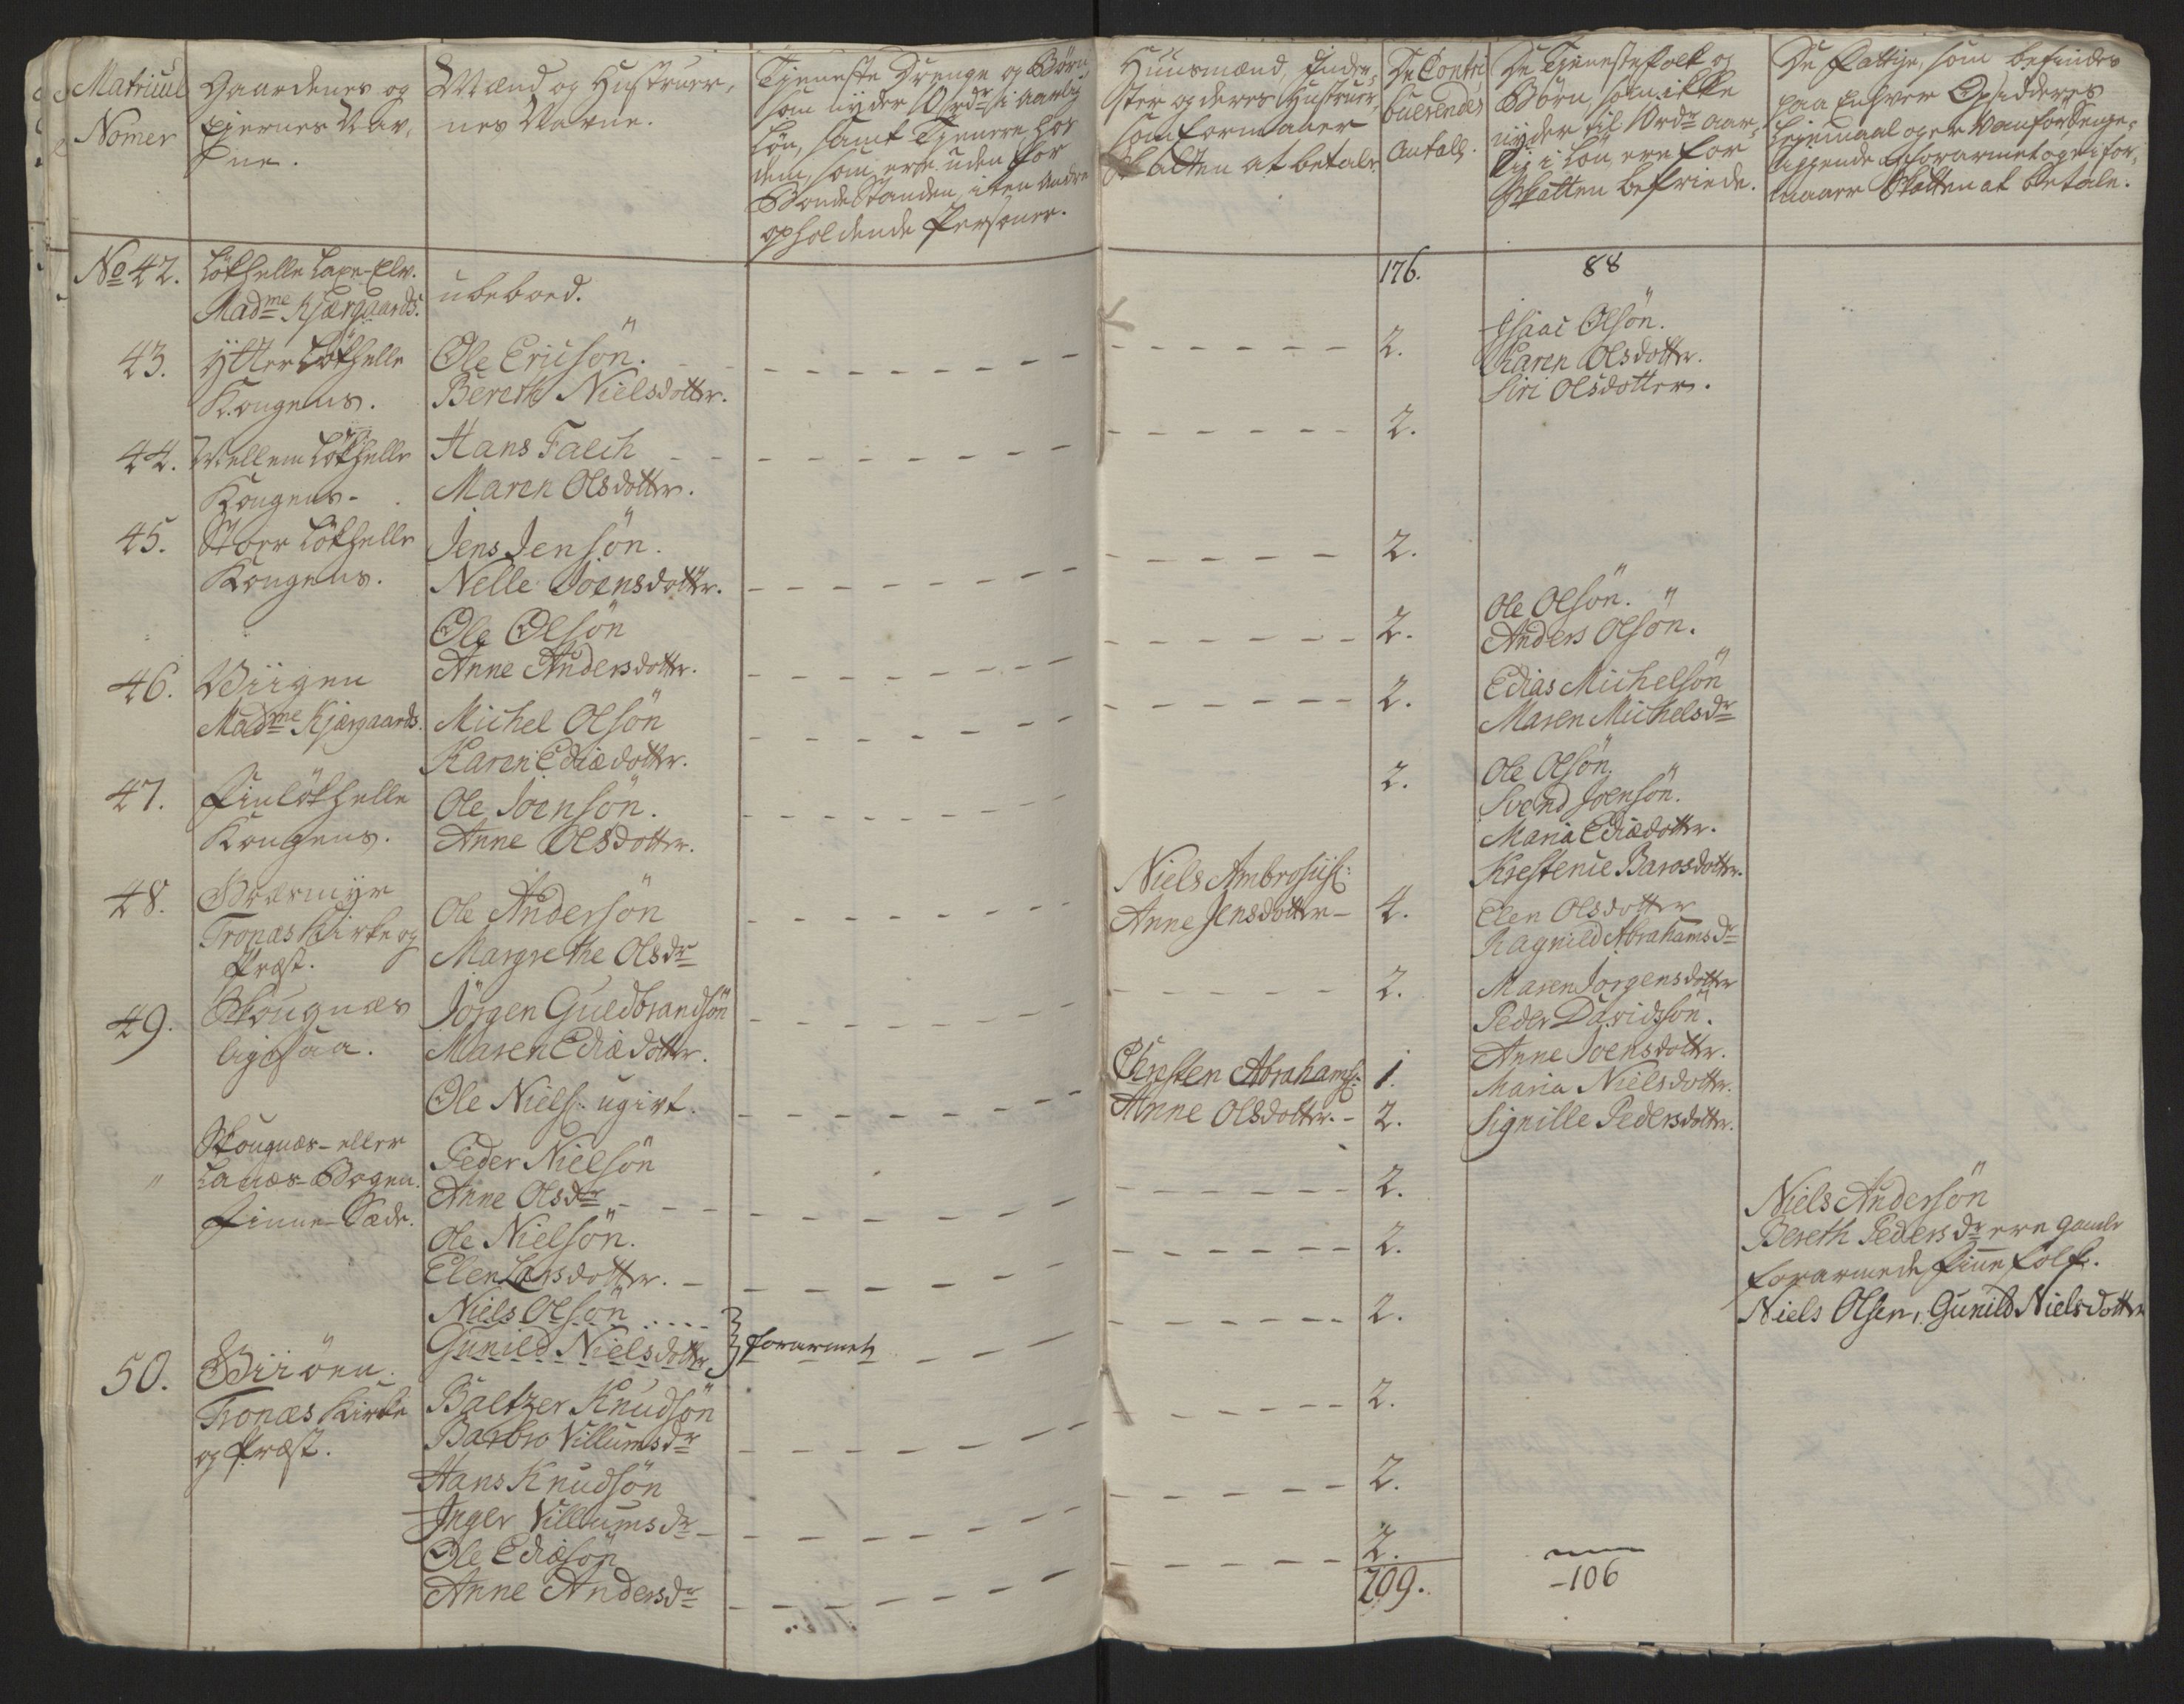 Matricul
Nomer
Gaardenes og
Ejernes Nav,
ne.
Mænd og Hustruer,
nes Navne.
Tjeneste Drenge og Börn
som nyder 10 rdr i aarlig
Lön, samt Tjenere hos
dem, som ere uden for
BondeStanden, item andre
opholdende Personer.
Huusmænd, Inder,
ster og deres Hustruer,
som formaaer
Skatten at betale.
De Contri
buerendes
Antall.
De Tjenestefolk og
Börn, som ikke
nyder til 10 rdr aar,
lig i Lön, ere for
Skatten befriede.
De fattige, som befindes
paa Enhver Opsidderes
Leyemaal og er Vanför Senge,
liggende og forarmet og ei for,
maaer Skatten at betale.
176.
88
No 42.
Lökhelle Laxe-Elv.
Madme Kjærgaards.
ubeboed.
43.
Ytter Lökhelle
Kongens.
Ole Ericsön.
Bereth Nielsdotter.
2.
Isaac Olsön.
Karen Olsdotter.
Siri Olsdotter.
44.
Mellem Lökhelle
Kongens.
Hans Falch
Maren Olsdotter.
2.
45.
Stoer Lökhelle
Kongens.
Jens Jensön.
Nelle Joensdotter.
2.
Ole Olsön
Anne Andersdotter.
2.
Ole Olsön.
Anders Olsön.
46.
Wiigen
Madme Kjærgaards.
Michel Olsön
Karen Ediædotter.
2.
Edias Michelsön
Maren Michelsdr
47.
Finlökhelle
Kongens.
Ole Joensön.
Anne Olsdotter.
2.
Ole Olsön.
Svend Joensön.
Maria Ediædotter.
Krestenie Barosdotter.
48.
Græsmyr
Tronæs Kirke og
Præst.
Ole Andersön
Margrethe Olsdr
Niels Ambrosius:
Anne Jensdotter
4.
Elen Olsdotter
Ragnild Abrahamsdr
49.
Skougnæs
Maren Ediædotter.
Jörgen Guldbrandsön
2.
Maren Jorgensdotter
Peder Davidsön.
Anne Joensdotter.
Ole Niels: ugivt.
Christen Abrahams:
Anne Olsdotter.
1.
2.
Maria Nielsdotter.
Signille Pedersdotter.
"
Skougnæs- eller
Lanæs-Bogen.
Finne-Sæde.
Peder Nielsön
Anne Olsdr
2.
Niels Andersön
Bereth Pedersdr ere gamle
forarmede Finne folk.
Ole Nielsön.
Elen Larsdotter.
2.
Niels Olsön
Gunild Nielsdotter
forarmet
2.
Niels Olsen, Gunild Nielsdotter
50.
Tronæs Kirke
og Præst.
Baltzer Knudsön
Barbro Villumsdr
2.
Hans Knudsön
Inger Villumsdr
2.
Ole Ediæsön
Anne Andersdr
2.
209.
106